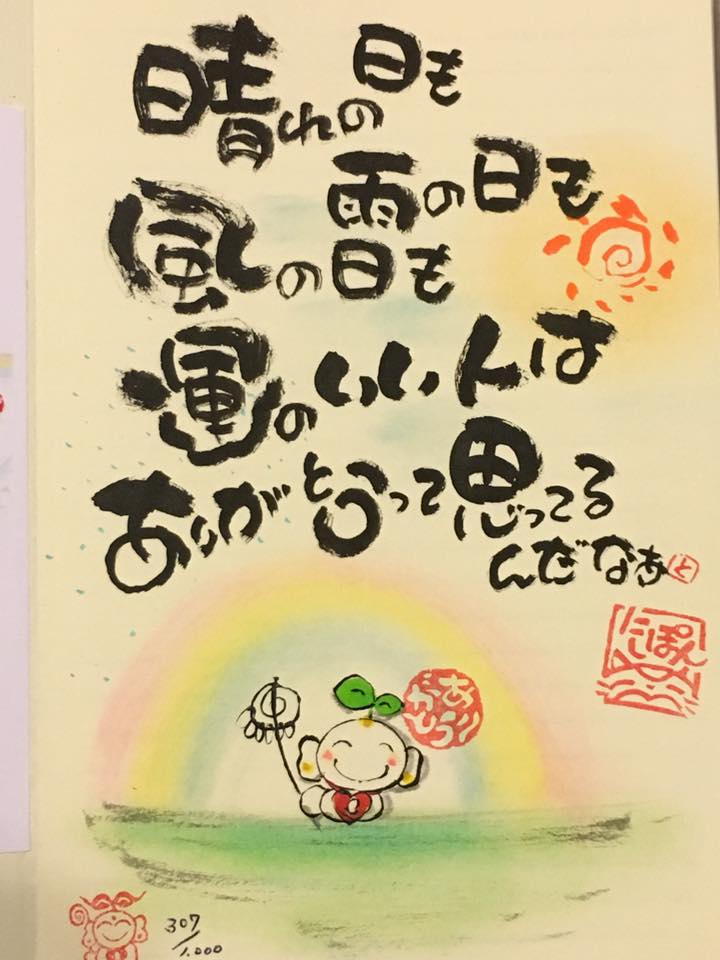 晴れの日も
雨の日も
風の日も
運のいい人は
ありがとうって思ってる
んだなあと
にぽん
ありがとう
307/1.000